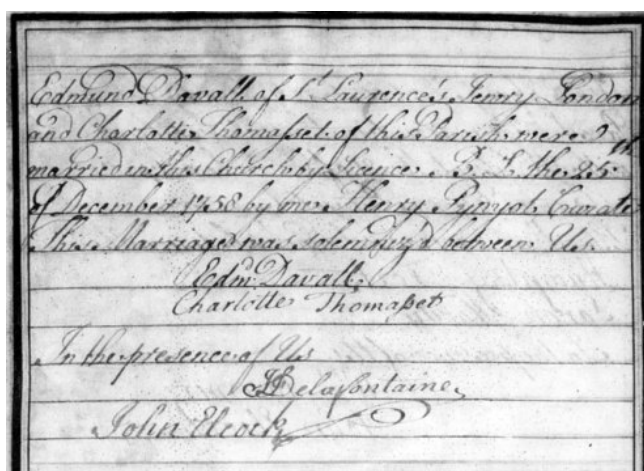 Edmund Davall of St Laurence's Jewry London
and Charlotte Thomasset of this Parish were
married in this Church by Licence B. L. the 25th
of December 1758 by me Henry Pynyot Curate
This Marriage was solemniz'd between Us
Edmd Davall
Charlotte Thomaßet
In the presence of Us
Delafontaine
John Elcock